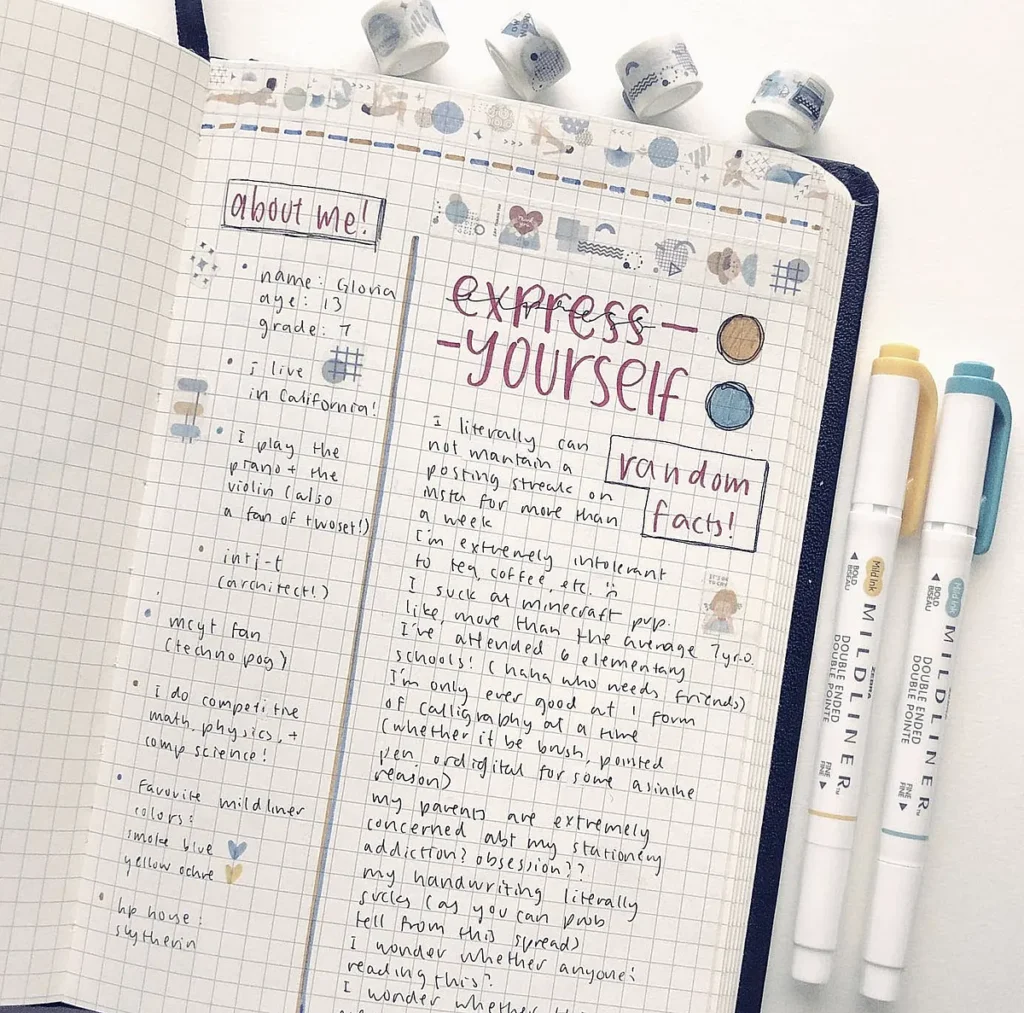 about me!
name: Gloria
age: 13
grade: 7
i live
in California!
I play the
piano + the
violin (also
a fan of twoset!)
intj-t
(architect!)
mcyt fan
(techno pog)
I do competitive
math, physics, +
comp science!
Favorite mildliner
colors:
smoke blue
yellow ochre
hp house:
slytherin
express-
express
-yourself
random
facts!
I literally can
not mantain a
posting streak on
insta for more than
a week
I'm extremely intolerant
to tea, coffee, etc. :(
I suck at minecraft pvp.
like, more than the average 7 yr.o.
I've attended 6 elementary
schools! (haha who needs friends)
I'm only ever good at 1 form
of calligraphy at a time
(whether it be brush, pointed
pen, or digital for some asinine
reason)
my parents are extremely
concerned abt my stationery
addiction? obsession??
my handwriting literally
sucks (as you can prob
tell from this spread)
I wonder whether anyone's
reading this?
I wonder whether
IT'S OK
TO CRY
BOLD
BISEAU
Mild Ink
ZEBRA
MILDLINER™
DOUBLE ENDED
DOUBLE POINTE
FINE
FINE
BOLD
BISEAU
Mild Ink
MILDLINER™
DOUBLE ENDED
DOUBLE POINTE
FINE
FINE